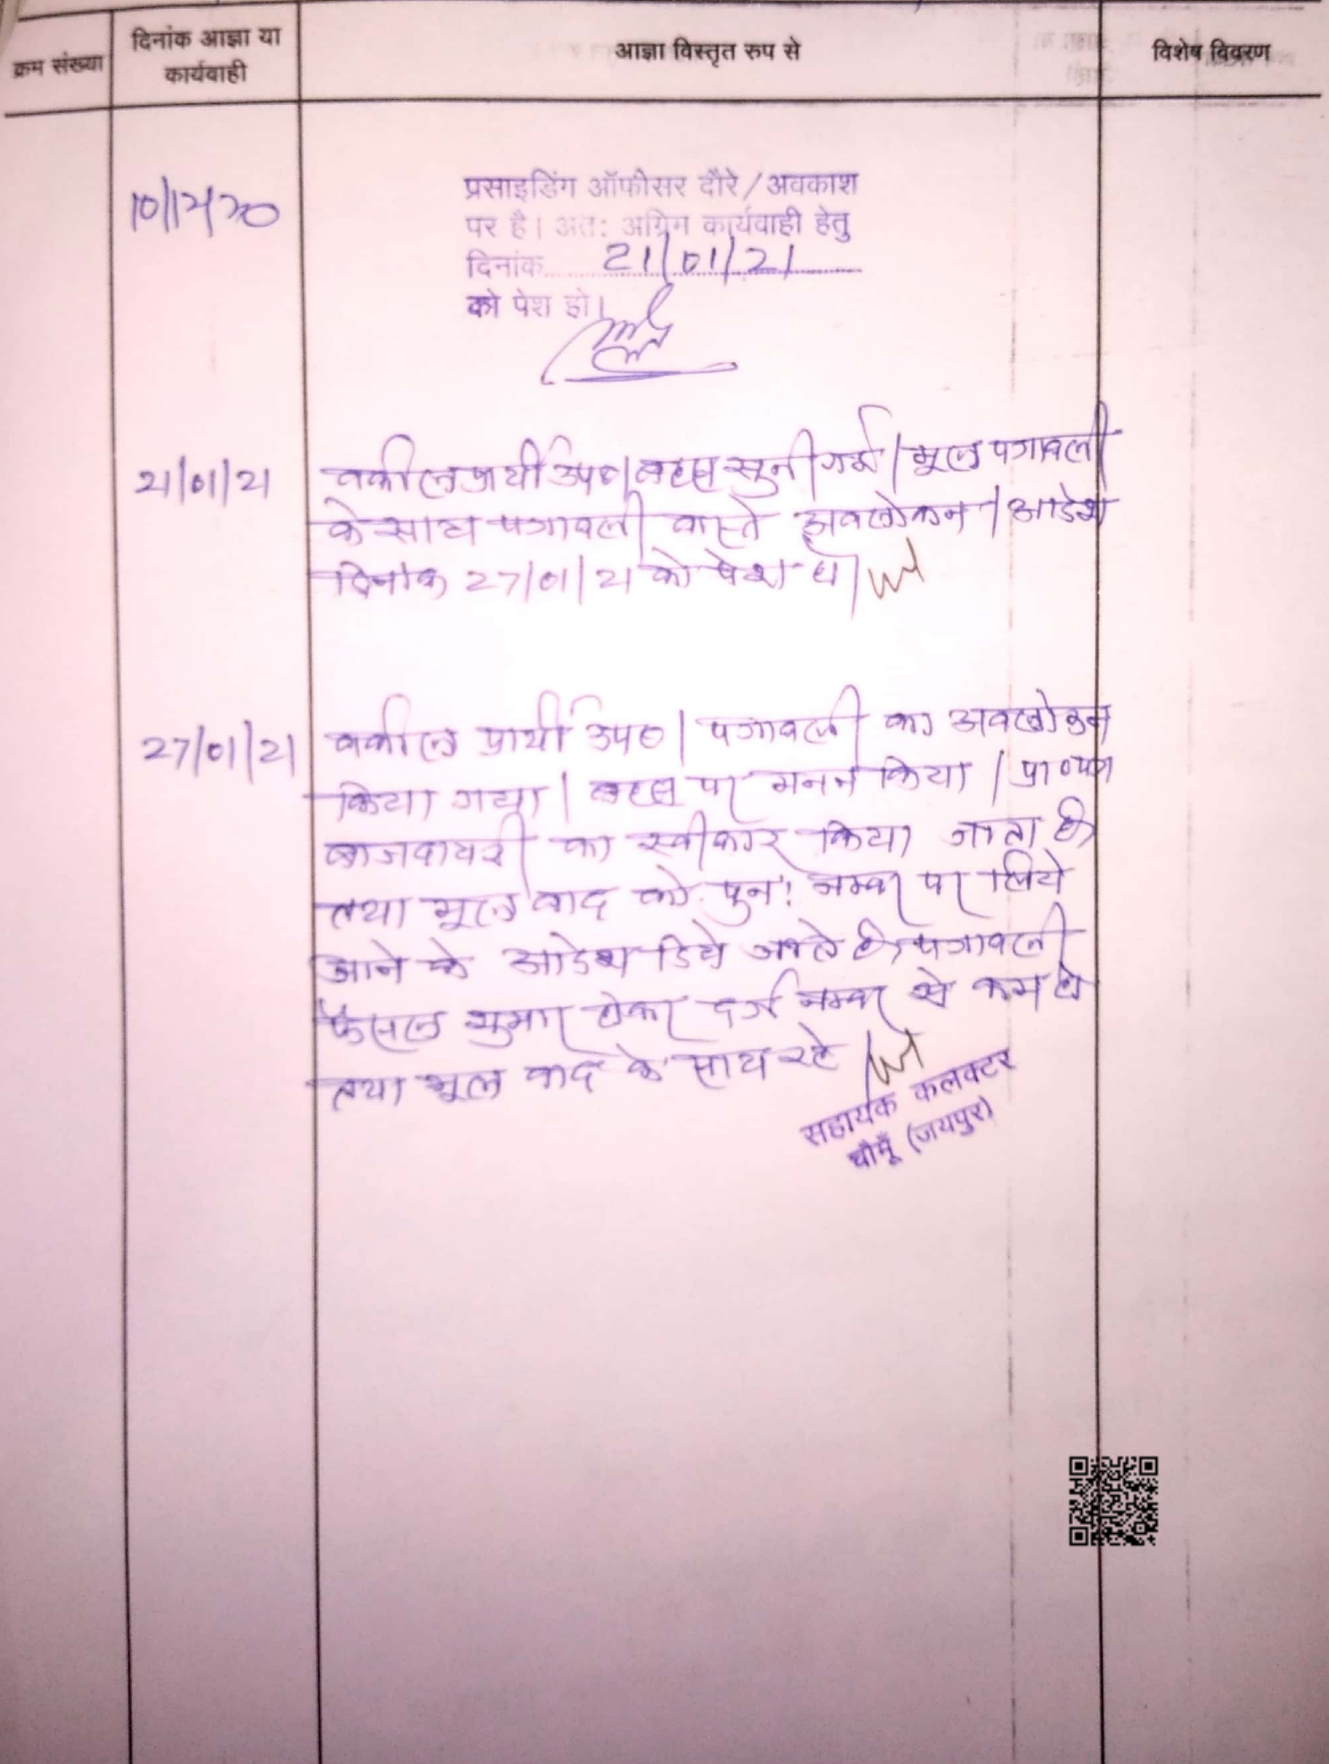 क्रम संख्या
दिनांक आज्ञा या
कार्यवाही
आज्ञा विस्तृत रुप से
विशेष विवरण
10/12/20
प्रसाइडिंग ऑफीसर दौरे/अवकाश
पर है। अतः अग्रिम कार्यवाही हेतु
दिनांक 21/01/21
को पेश हो।
21/01/21
वकील प्रार्थी उप०। बहस सुनी गई। मूल पत्रावली
के साथ पत्रावली वास्ते अवलोकन/आदेश
दिनांक 27/01/21 को पेश हो।
27/01/21
वकील प्रार्थी उप०। पत्रावली का अवलोकन
किया गया। बहस पर मनन किया। प्रा०पत्र
बाजदायरी का स्वीकार किया जाता है
तथा मूल वाद को पुनः नम्बर पर लिये
जाने के आदेश दिये जाते है। पत्रावली
फैसल शुमार होकर दर्ज नम्बर से कम हो
तथा मूल वाद के साथ रहे।
सहायक कलक्टर
चौमूँ (जयपुर)